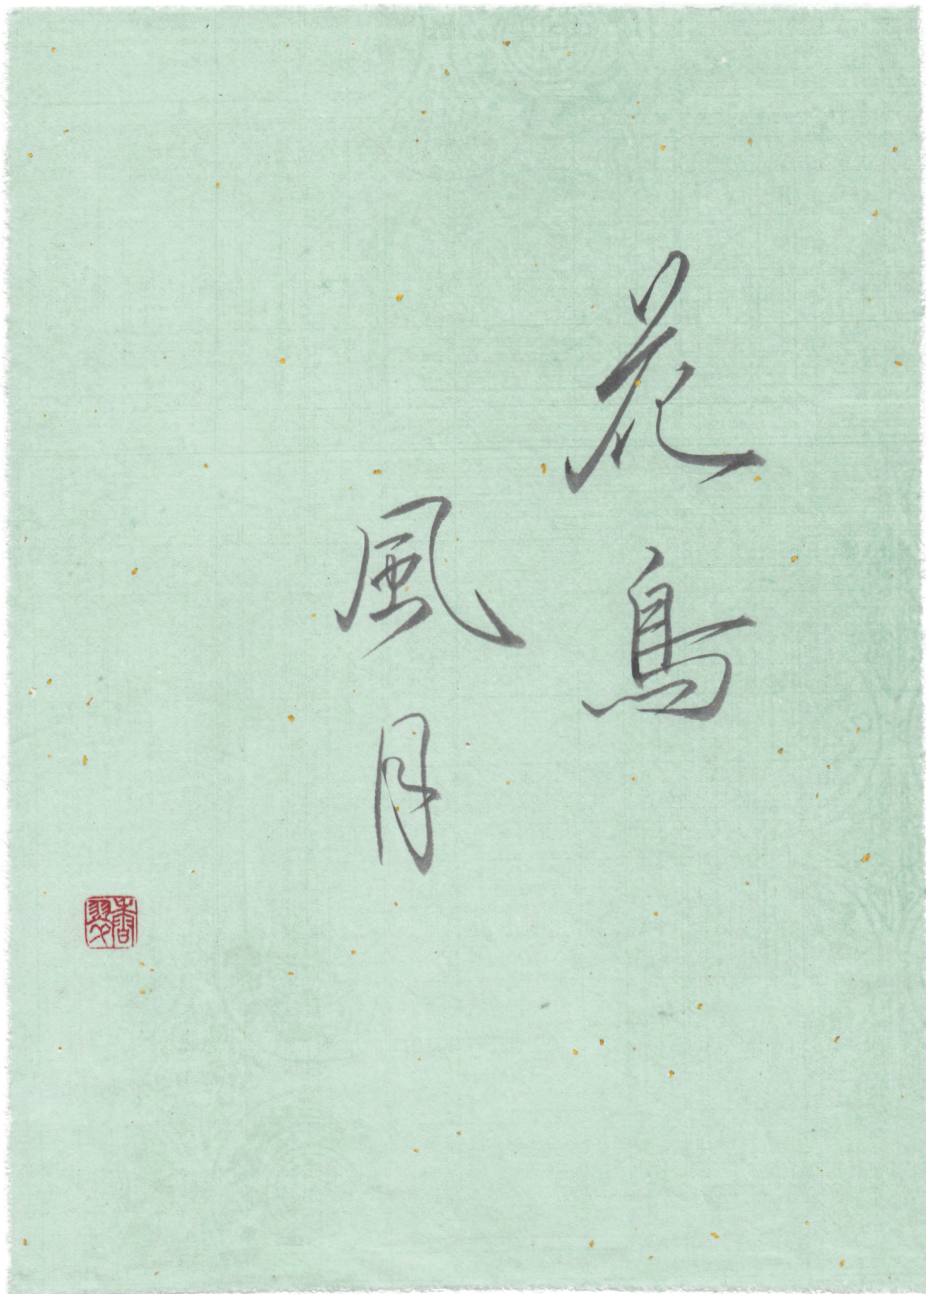 花鳥
風月